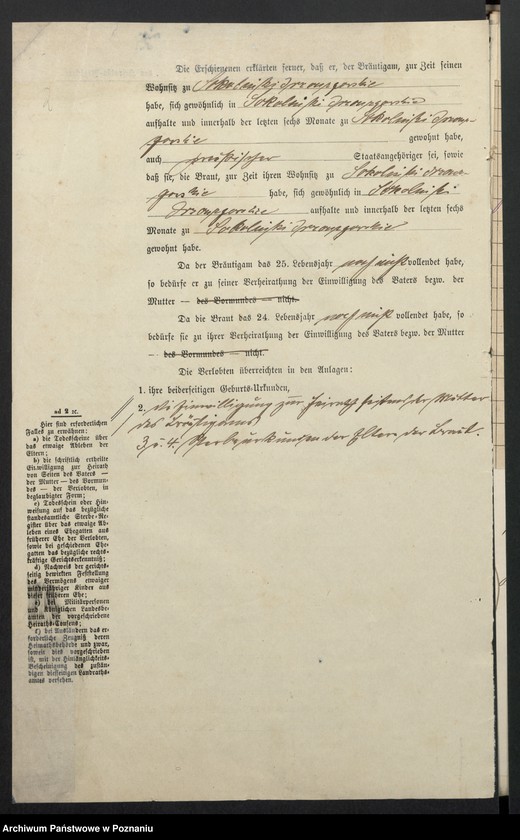 Die Erschienenen erklärten ferner, daß er, der Bräutigam, zur Zeit seinen
Wohnsitz zu Sokolniki drzązgowskie
habe, sich gewöhnlich in Sokolniki drzązgowskie
aufhalte und innerhalb der letzten sechs Monate zu Sokolniki
gewohnt habe,
auch preußischer Staatsangehöriger sei, sowie
daß sie, die Braut, zur Zeit ihren Wohnsitz zu Sokolniki
habe, sich gewöhnlich in Sokolniki
aufhalte und innerhalb der letzten sechs
Monate zu Sokolniki drzązgowskie
gewohnt habe.
Da der Bräutigam das 25. Lebensjahr noch nicht vollendet habe,
so bedürfe er zu seiner Verheirathung der Einwilligung des Vaters bezw. der
Mutter — des Vormundes — nicht.
Da die Braut das 24. Lebensjahr noch nicht vollendet habe, so
bedürfe sie zu ihrer Verheirathung der Einwilligung des Vaters bezw. der Mutter
— des Vormundes — nicht.
Die Verlobten überreichten in den Anlagen:
1. ihre beiderseitigen Geburts-Urkunden,
2. die Einwilligung zur Heirath der Mutter
des Bräutigams
3 u. 4. Sterbeurkunden der Eltern der Braut.
ad 2 ꝛc.
Hier sind erforderlichen
Falles zu erwähnen:
a) die Todtescheine über
das etwaige Ableben der
Eltern;
b) die schriftlich ertheilte
Einwilligung zur Heirath
von Seiten des Vaters —
der Mutter — des Vormun-
des — der Verlobten, in
beglaubigter Form;
c) Todesschein oder Hin-
weisung auf das bezügliche
standesamtliche Sterbe-Re-
gister über das etwaige Ab-
leben eines Ehegatten aus
früherer Ehe der Verlobten,
sowie bei geschiedenen Ehe-
gatten das bezügliche rechts-
kräftige Gerichtserkenntniß;
d) Nachweis der gerichts-
seitig bewirkten Feststellung
des Vermögens etwaiger
minderjähriger Kinder aus
dieser früheren Ehe;
e) bei Militärpersonen
und königlichen Landesbe-
amten der vorgeschriebene
Heiraths-Consens;
f) bei Ausländern das er-
forderliche Zeugniß deren
Heimathsbehörde und zwar,
soweit dies vorgeschrieben
ist, mit der Hinlänglichkeits-
Bescheinigung des zustän-
digen diesseitigen Landraths-
amtes versehen.
Archiwum Państwowe w Poznaniu